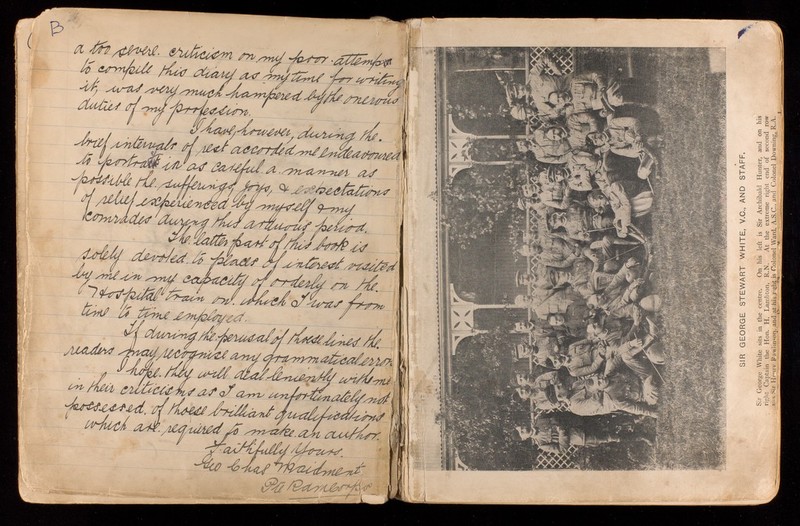 B
a too severe criticism on my poor attempts
to compile this diary as my time for writing
it, was very much hampered by the onerous
duties of my profession.
I have, however, during the
brief intervals of rest accorded me endeavoured
to portrait in as careful a manner as
possible the sufferings, joys, & expectations
of relief experienced by myself & my
comrades during this arduous period.
The latter part of this book is
solely devoted to places of interest visited
by me in my capacity of orderly on the
"Hospital" train on which I was from
time to time employed.
If during the perusal of these lines the
readers may recognise any grammatical error
I hope they will deal leniently with me
in their criticisms as I am unfortunately not
possessed of those brilliant qualifications
which are required to make an author.
Faithfully Yours.
Geo Chas Maidment
SIR GEORGE STEWART WHITE, V.C., AND STAFF.
Sir George White sits in the centre. On his left is Sir Archibald Hunter, and on his
right Captain the Hon. H. Lambton, R.N. At the extreme right end of second row
sits Sir Henry Rawlinson, and at his right is Colonel Ward, A.S.C., and Colonel Downing, R.A.